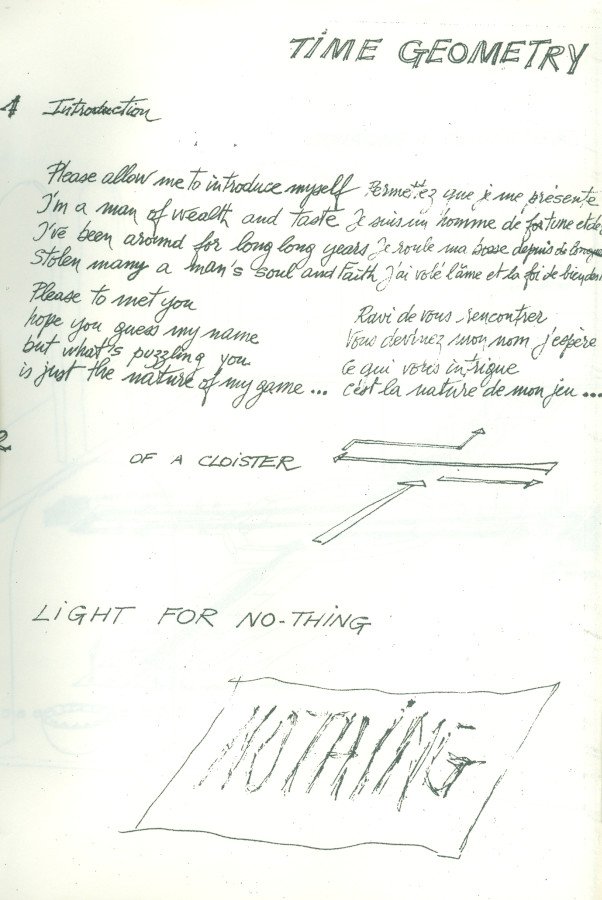 TIME GEOMETRY
1 Introduction
Please allow me to introduce myself Permettez que je me présente
I'm a man of wealth and taste Je suis un homme de fortune et de
I've been around for long long years Je roule ma bosse depuis de longues
Stolen many a man's soul and faith J'ai volé l'âme et la foi de bien des
Please to met you
hope you guess my name
but what's puzzling you
is just the nature of my game ...
Ravi de vous rencontrer
Vous devinez mon nom j'espère
Ce qui vous intrigue
c'est la nature de mon jeu ...
2
OF A CLOISTER
LIGHT FOR NO-THING
NOTHING